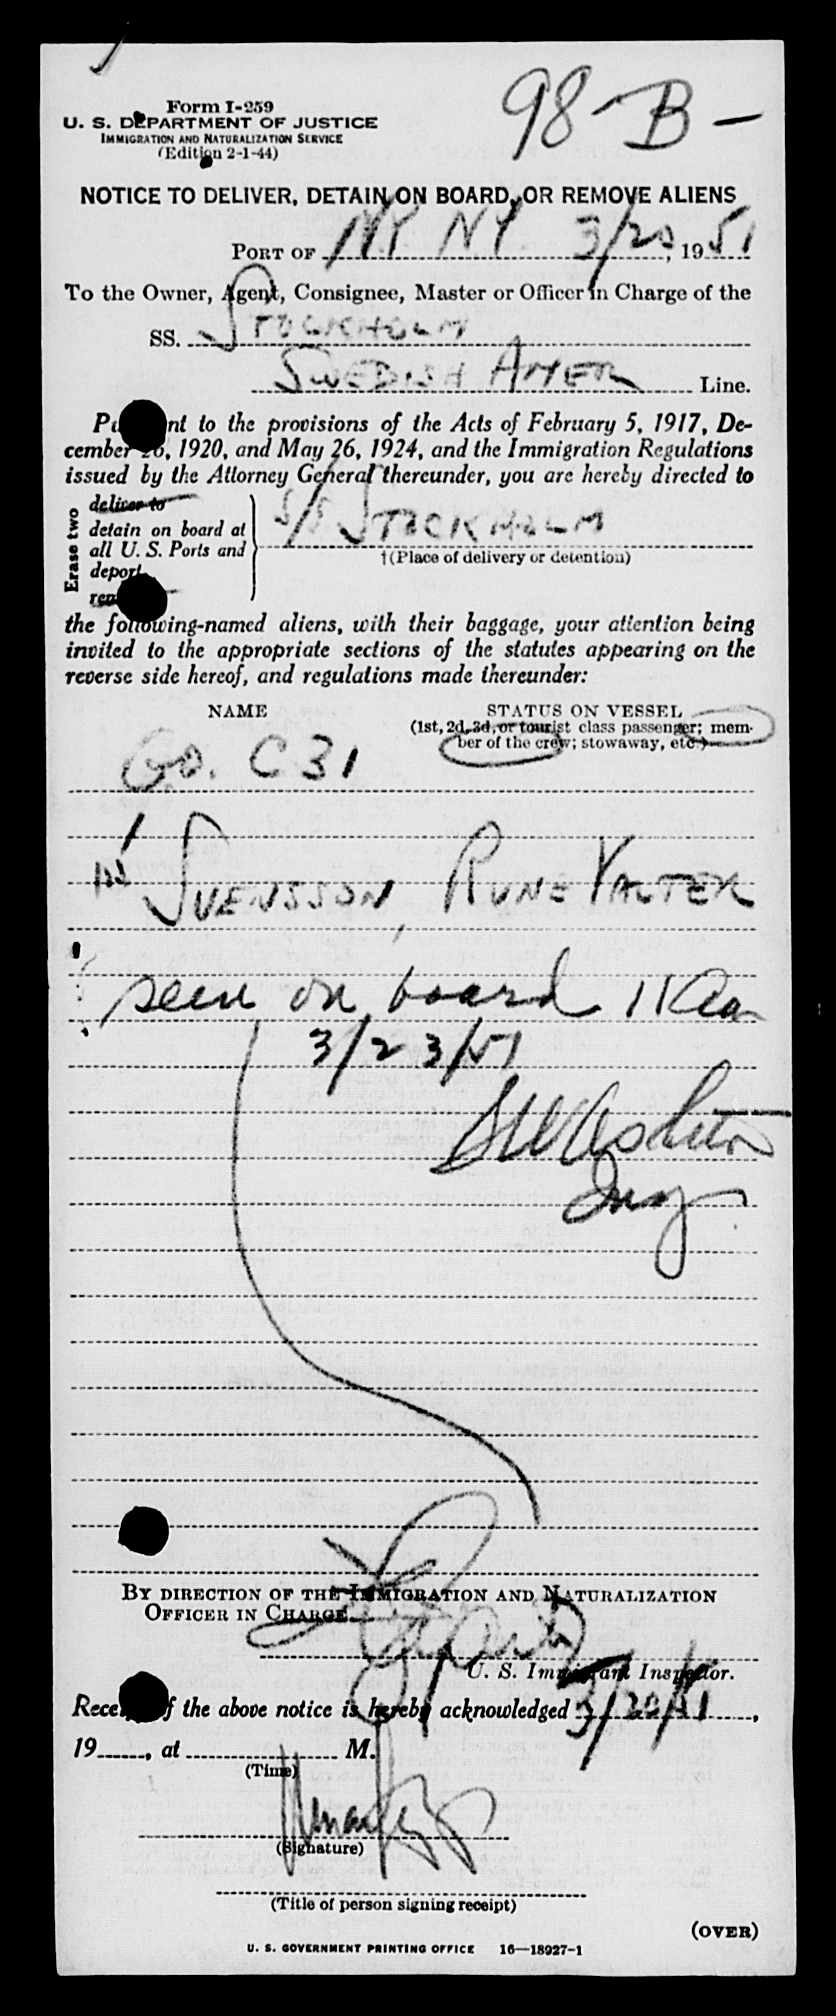 98-B-
Form I-259
U. S. DEPARTMENT OF JUSTICE
IMMIGRATION AND NATURALIZATION SERVICE
(Edition 2-1-44)
NOTICE TO DELIVER, DETAIN ON BOARD, OR REMOVE ALIENS
PORT OF NY NY 3/20, 1951
To the Owner, Agent, Consignee, Master or Officer in Charge of the
SS. STOCKHOLM
SWEDISH AMER Line.
nt to the provisions of the Acts of February 5, 1917, De-
cember 26, 1920, and May 26, 1924, and the Immigration Regulations
issued by the Attorney General thereunder, you are hereby directed to
Erase two
deliver to
detain on board at
all U. S. Ports and
deport
S/S STOCKHOLM
†(Place of delivery or detention)
the following-named aliens, with their baggage, your attention being
invited to the appropriate sections of the statutes appearing on the
reverse side hereof, and regulations made thereunder:
NAME STATUS ON VESSEL
(1st, 2d, 3d, or tourist class passenger; mem-
ber of the crew; stowaway, etc.)
C 31
SVENSSON, RUNE VALTER
seen on board 11
3/23/51
BY DIRECTION OF THE IMMIGRATION AND NATURALIZATION
OFFICER IN CHARGE.
U. S. Immigrant Inspector.
Rece f the above notice is hereby acknowledged 3/20/51,
19 , at M.
(Time)
(Signature)
(Title of person signing receipt)
(OVER)
U. S. GOVERNMENT PRINTING OFFICE 16—18927-1